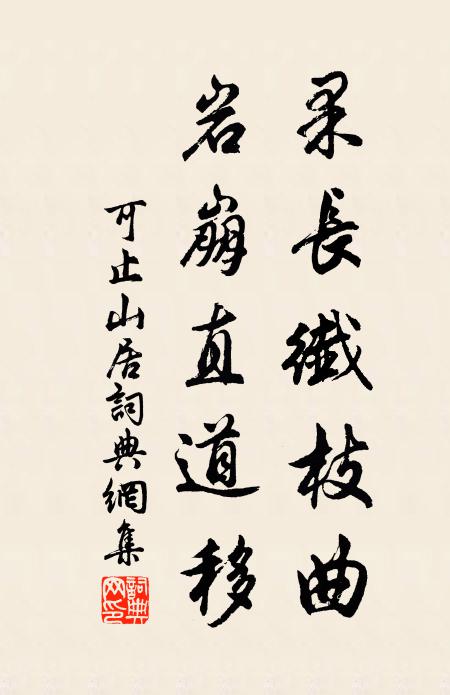 果長纖枝曲
岩崩直道移
可止山居詞典網集
詞典網印